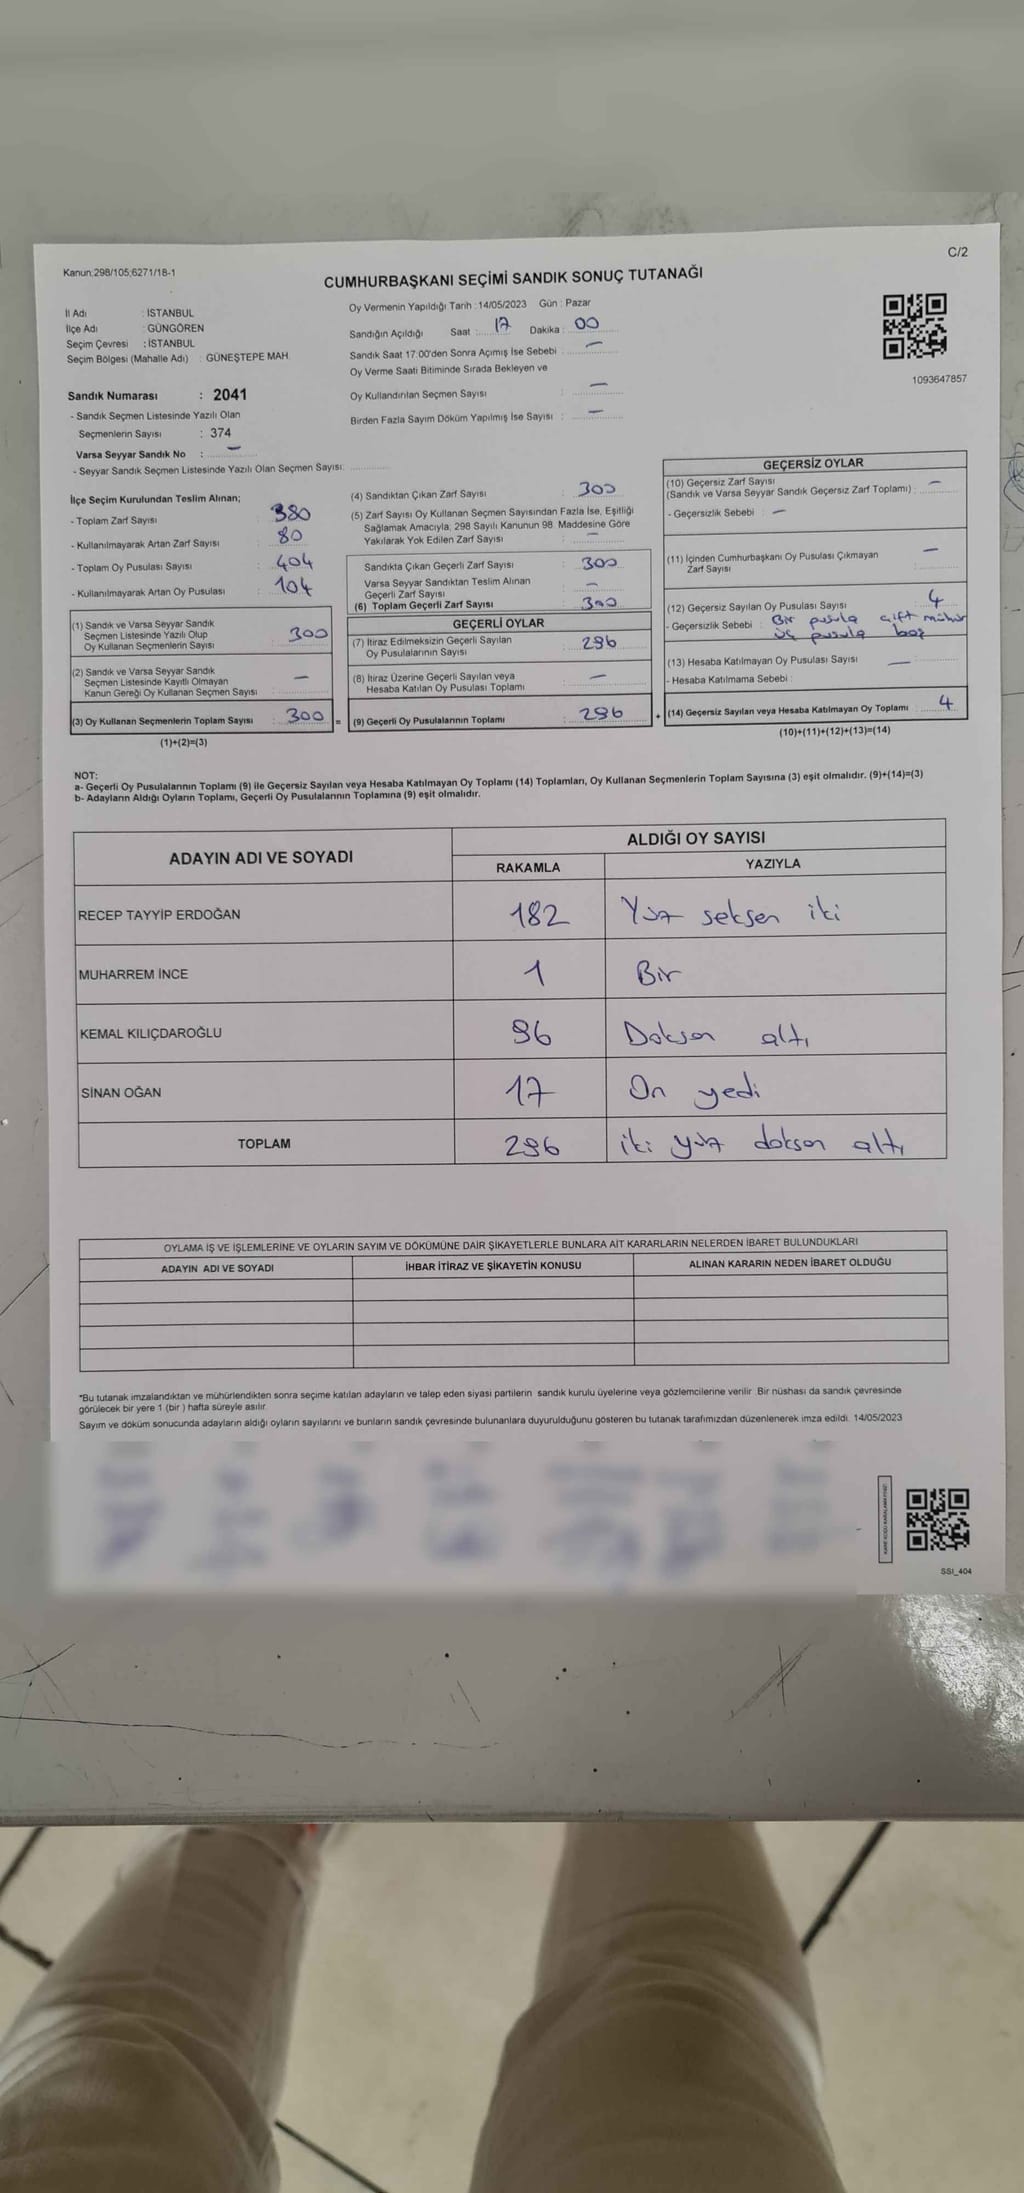 C/2
Kanun:298/105;6271/18-1
CUMHURBAŞKANI SEÇİMİ SANDIK SONUÇ TUTANAĞI
İl Adı : İSTANBUL
İlçe Adı : GÜNGÖREN
Seçim Çevresi : İSTANBUL
Seçim Bölgesi (Mahalle Adı) : GÜNEŞTEPE MAH.
Sandık Numarası : 2041
- Sandık Seçmen Listesinde Yazılı Olan
Seçmenlerin Sayısı : 374
Varsa Seyyar Sandık No : —
- Seyyar Sandık Seçmen Listesinde Yazılı Olan Seçmen Sayısı:
Oy Vermenin Yapıldığı Tarih : 14/05/2023 Gün : Pazar
Sandığın Açıldığı Saat : 17 Dakika : 00
Sandık Saat 17:00'den Sonra Açımış İse Sebebi : —
Oy Verme Saati Bitiminde Sırada Bekleyen ve
Oy Kullandırılan Seçmen Sayısı : —
Birden Fazla Sayım Döküm Yapılmış İse Sayısı : —
1093647857
İlçe Seçim Kurulundan Teslim Alınan;
- Toplam Zarf Sayısı : 380
- Kullanılmayarak Artan Zarf Sayısı : 80
- Toplam Oy Pusulası Sayısı : 404
- Kullanılmayarak Artan Oy Pusulası : 104
(1) Sandık ve Varsa Seyyar Sandık
Seçmen Listesinde Yazılı Olup
Oy Kullanan Seçmenlerin Sayısı : 300
(2) Sandık ve Varsa Seyyar Sandık
Seçmen Listesinde Kayıtlı Olmayan
Kanun Gereği Oy Kullanan Seçmen Sayısı : —
(3) Oy Kullanan Seçmenlerin Toplam Sayısı : 300 =
(1)+(2)=(3)
(4) Sandıktan Çıkan Zarf Sayısı : 300
(5) Zarf Sayısı Oy Kullanan Seçmen Sayısından Fazla İse, Eşitliği
Sağlamak Amacıyla; 298 Sayılı Kanunun 98. Maddesine Göre
Yakılarak Yok Edilen Zarf Sayısı : —
Sandıkta Çıkan Geçerli Zarf Sayısı : 300
Varsa Seyyar Sandıktan Teslim Alınan
Geçerli Zarf Sayısı : —
(6) Toplam Geçerli Zarf Sayısı : 300
GEÇERLİ OYLAR
(7) İtiraz Edilmeksizin Geçerli Sayılan
Oy Pusulalarının Sayısı : 296
(8) İtiraz Üzerine Geçerli Sayılan veya
Hesaba Katılan Oy Pusulası Toplamı : —
(9) Geçerli Oy Pusulalarının Toplamı : 296 +
GEÇERSİZ OYLAR
(10) Geçersiz Zarf Sayısı
(Sandık ve Varsa Seyyar Sandık Geçersiz Zarf Toplamı) : —
- Geçersizlik Sebebi : —
(11) İçinden Cumhurbaşkanı Oy Pusulası Çıkmayan
Zarf Sayısı : —
(12) Geçersiz Sayılan Oy Pusulası Sayısı : 4
- Geçersizlik Sebebi : Bir pusula çift mühür
üç pusula boş
(13) Hesaba Katılmayan Oy Pusulası Sayısı : —
- Hesaba Katılmama Sebebi :
(14) Geçersiz Sayılan veya Hesaba Katılmayan Oy Toplamı : 4
(10)+(11)+(12)+(13)=(14)
NOT:
a- Geçerli Oy Pusulalarının Toplamı (9) ile Geçersiz Sayılan veya Hesaba Katılmayan Oy Toplamı (14) Toplamları, Oy Kullanan Seçmenlerin Toplam Sayısına (3) eşit olmalıdır. (9)+(14)=(3)
b- Adayların Aldığı Oyların Toplamı, Geçerli Oy Pusulalarının Toplamına (9) eşit olmalıdır.
ADAYIN ADI VE SOYADI ALDIĞI OY SAYISI
RAKAMLA YAZIYLA
RECEP TAYYİP ERDOĞAN 182 Yüz seksen iki
MUHARREM İNCE 1 Bir
KEMAL KILIÇDAROĞLU 96 Doksan altı
SİNAN OĞAN 17 On yedi
TOPLAM 296 iki yüz doksan altı
OYLAMA İŞ VE İŞLEMLERİNE VE OYLARIN SAYIM VE DÖKÜMÜNE DAİR ŞİKAYETLERLE BUNLARA AİT KARARLARIN NELERDEN İBARET BULUNDUKLARI
ADAYIN ADI VE SOYADI İHBAR İTİRAZ VE ŞİKAYETİN KONUSU ALINAN KARARIN NEDEN İBARET OLDUĞU
*Bu tutanak imzalandıktan ve mühürlendikten sonra seçime katılan adayların ve talep eden siyasi partilerin sandık kurulu üyelerine veya gözlemcilerine verilir. Bir nüshası da sandık çevresinde
görülecek bir yere 1 (bir ) hafta süreyle asılır.
Sayım ve döküm sonucunda adayların aldığı oyların sayılarını ve bunların sandık çevresinde bulunanlara duyurulduğunu gösteren bu tutanak tarafımızdan düzenlenerek imza edildi. 14/05/2023
SSI_404